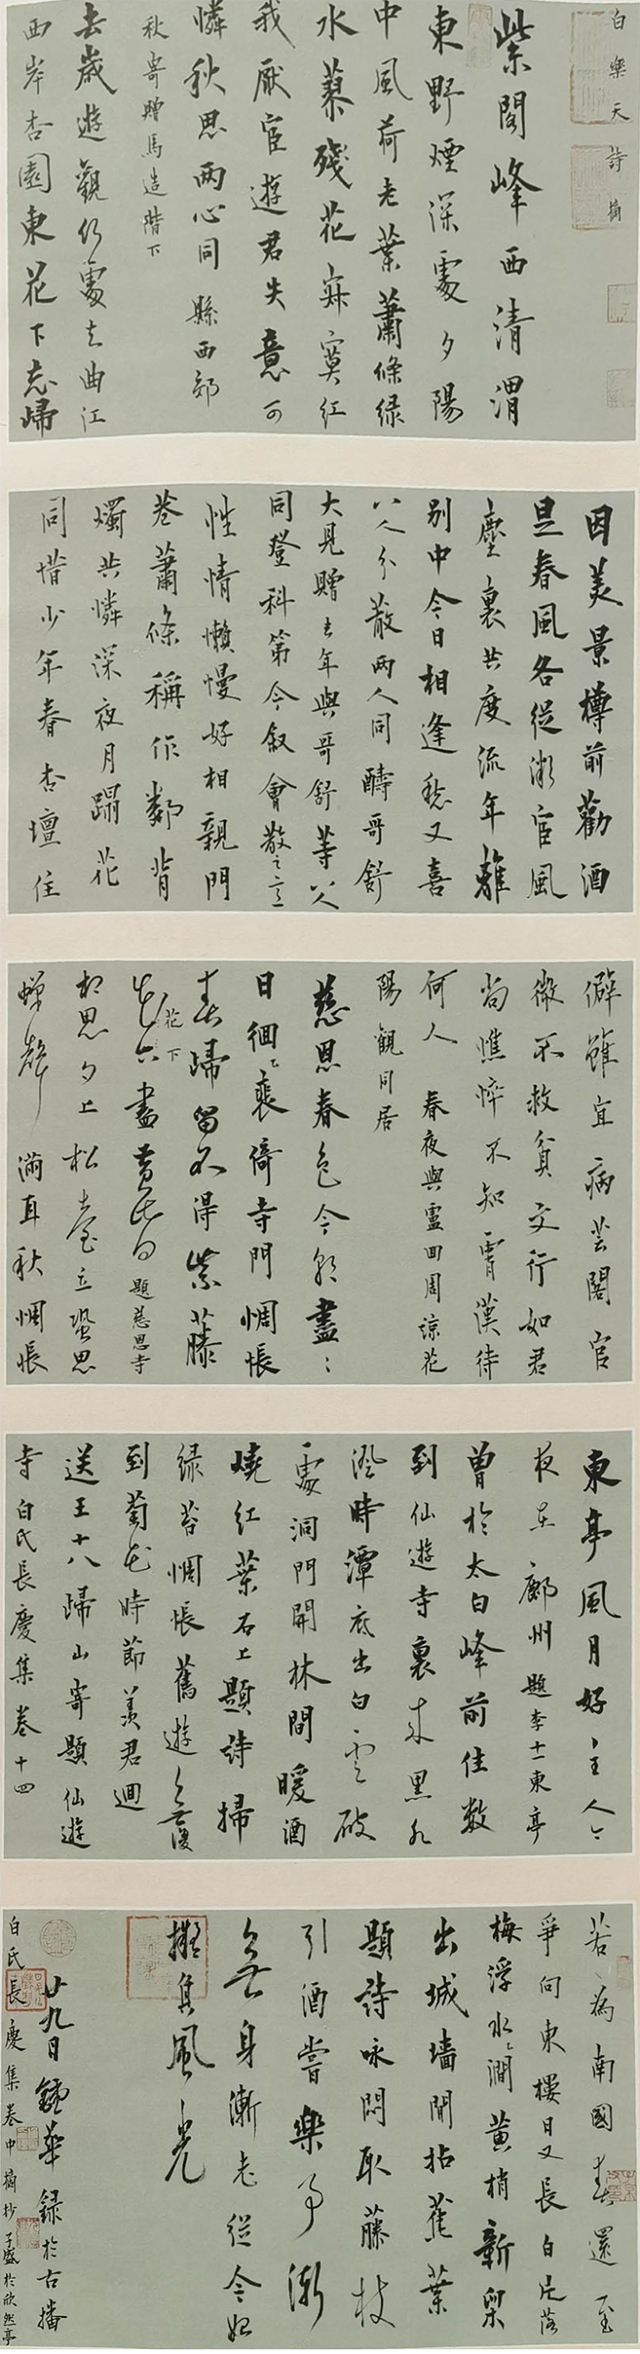 白樂天詩摘
紫閣峰西清渭
東野煙深處夕陽
中風荷老葉蕭條綠
水蓼殘花寂寞紅
我厭宦遊君失意可
憐秋思兩心同 縣西郊
秋寄贈馬造階下
去歲遊觀何處去曲江
西岸杏園東花下忘歸
因美景樽前勸酒
是春風各從微宦風
塵裏共度流年離
別中今日相逢愁又喜
八人分散兩人同 酬哥舒
大見贈去年與哥舒等八人
同登科第今敘會散之意
性情懶慢好相親門
巷蕭條稱作鄰背
燭共憐深夜月蹋花
同惜少年春杏壇住
僻雖宜病芸閣官
微不救貧文行如君
尚憔悴不知霄漢待
何人 春夜與盧四周諒花
陽觀同居
慈恩春色今朝盡〻
日徊〻裵倚寺門惆悵
春歸留不得紫藤
花下
花下盡黃昏 題慈恩寺
相思夕上松臺立蛩思
蟬聲滿耳秋惆悵
東亭風月好〻主人今
夜在鄜州 題李十一東亭
曾於太白峰前住數
到仙遊寺裏來黑水
澄時潭底出白雲破
處洞門開林間暖酒
燒紅葉石上題詩掃
綠苔惆悵舊遊無復
到菊花時節羨君迴
送王十八歸山寄題仙遊
寺 白氏長慶集卷十四
若〻為南國春還至
爭向東樓日又長白片落
梅浮水〻澗黃梢新柳
出城墻閒拈蕉葉
題詩詠悶取藤枝
引酒嘗樂事漸
無身漸老從今始
擬負風光
廿九日鍾華錄於古播
白氏長慶集卷中摘抄子盛於欣然亭